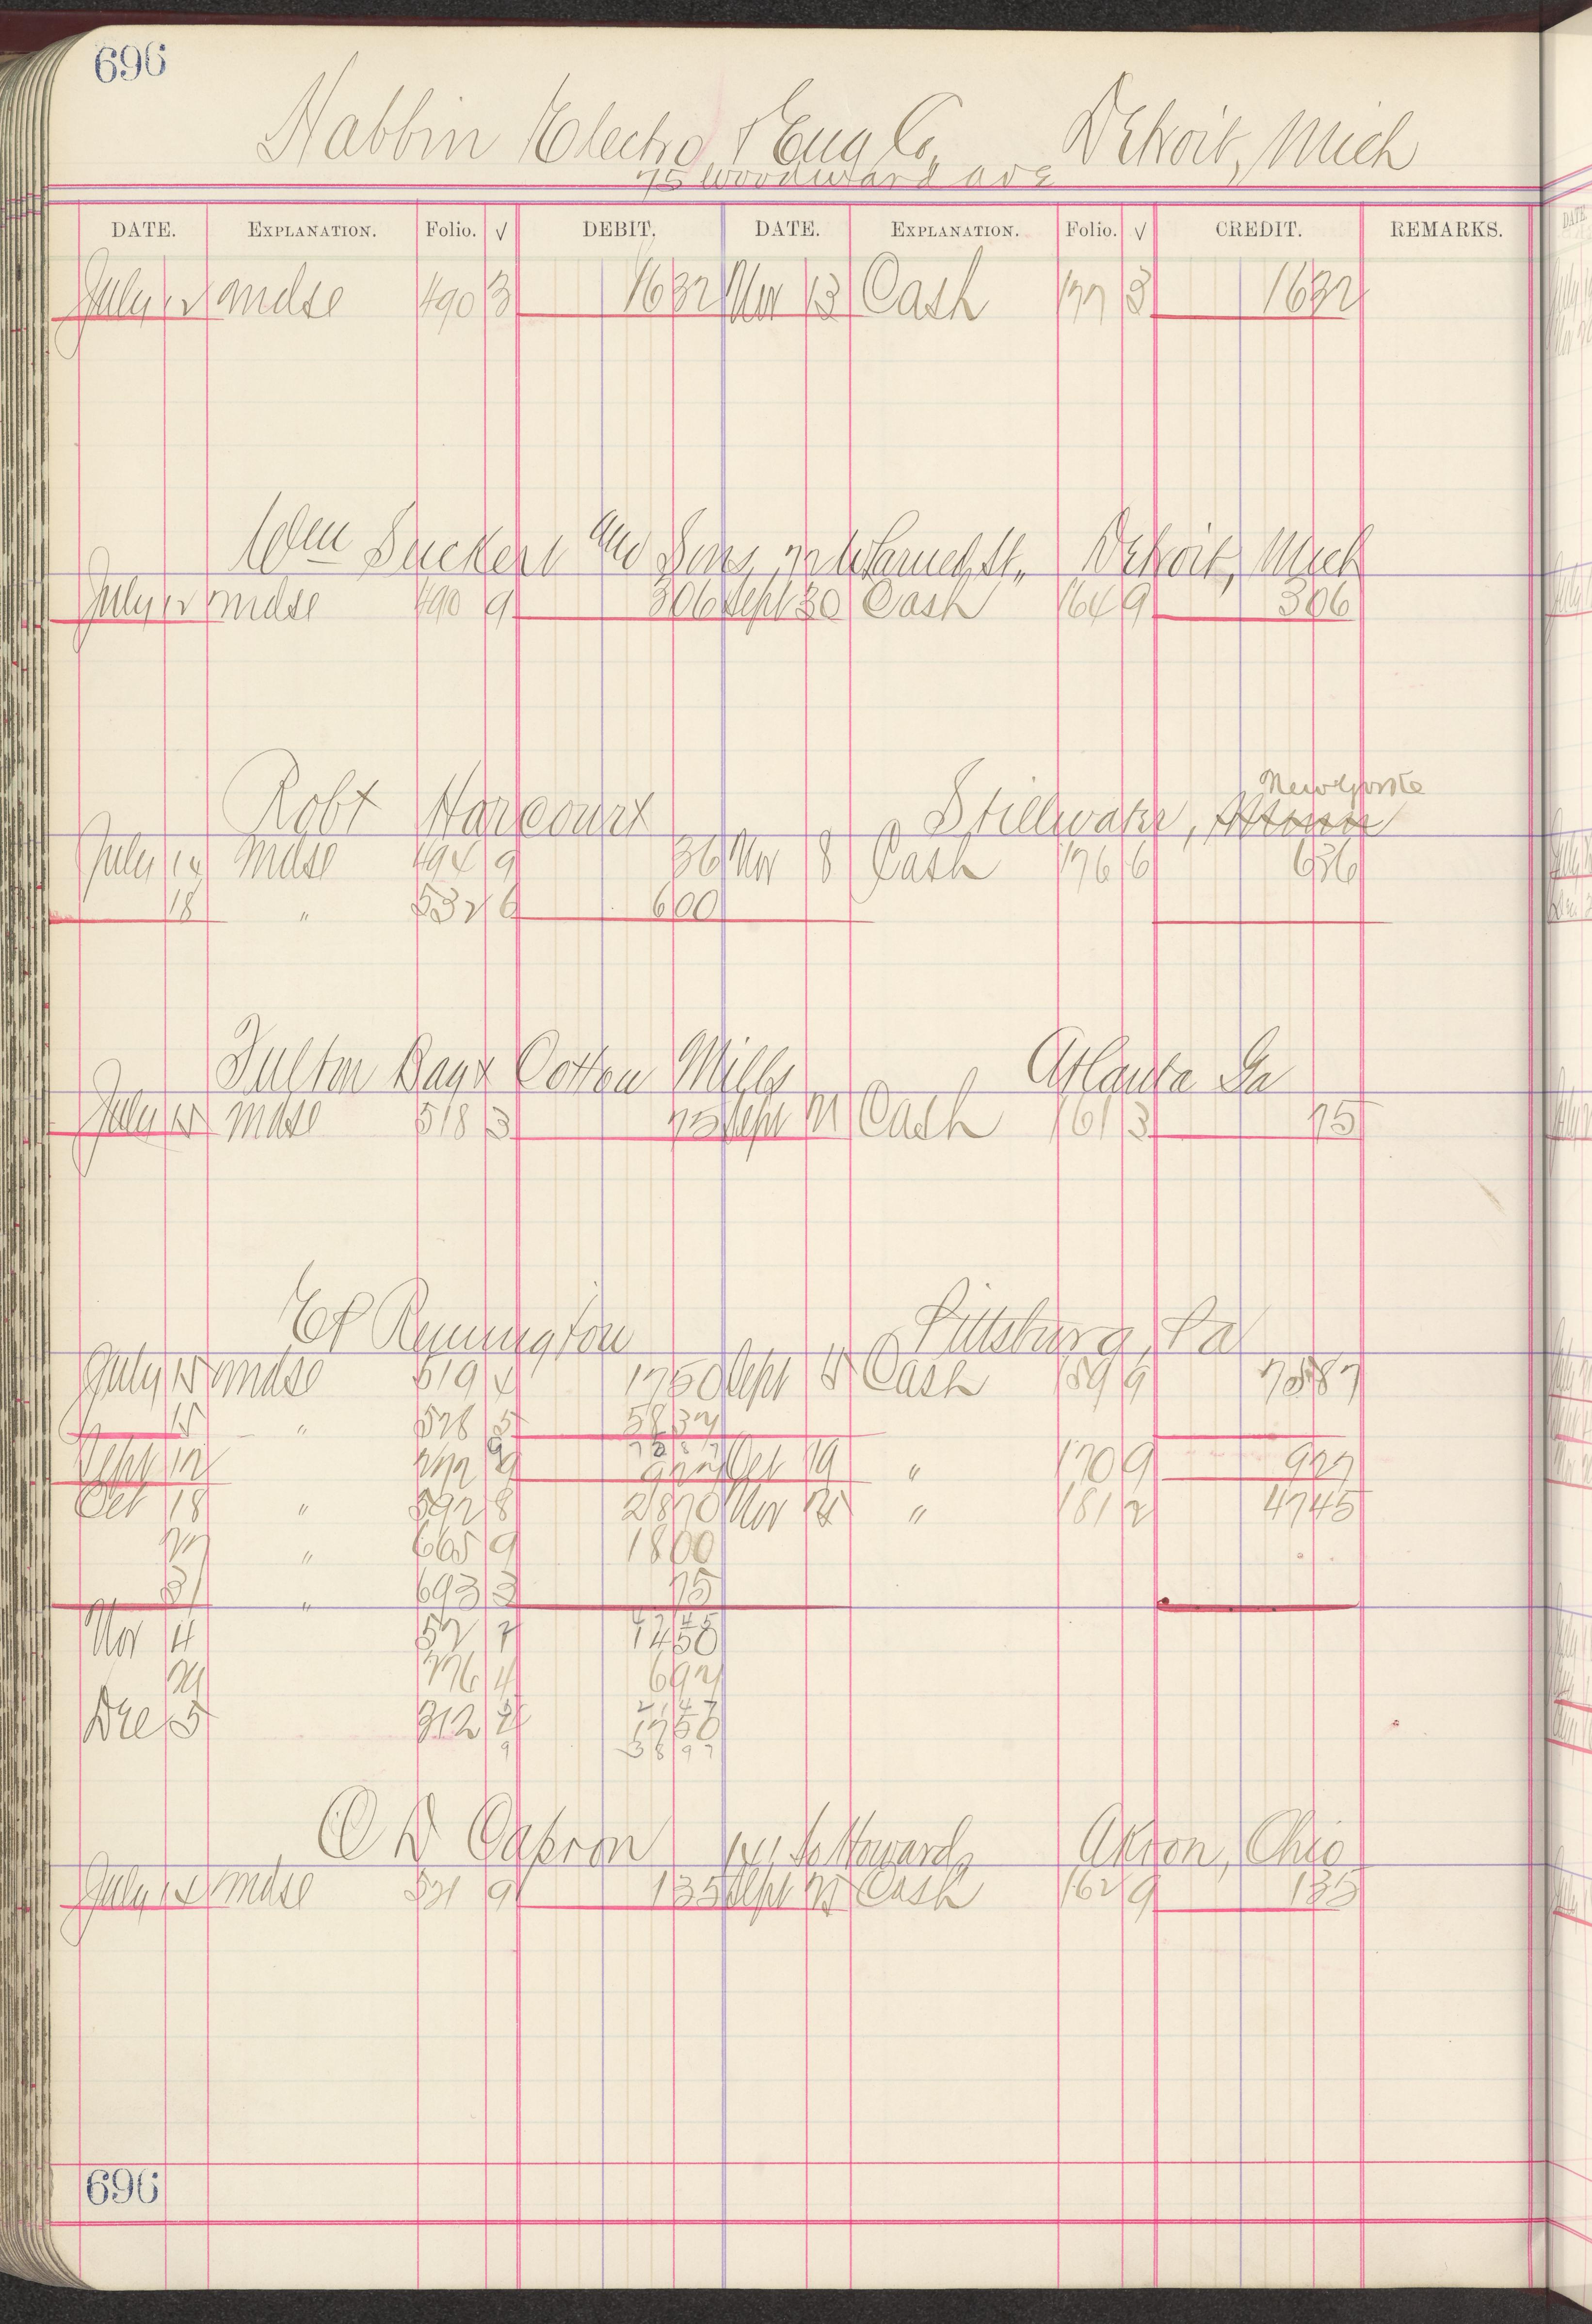 696
Habbin Electro & Eng Co, Detroit, Mich
75 Woodward ave
DATE. EXPLANATION. Folio. √ DEBIT. DATE. EXPLANATION. Folio. √ CREDIT. REMARKS.
July 12 mdse 490 3 1632 Nov 13 Cash 177 3 1632
Wm Suckert and Sons, St., Detroit, Mich
July 12 mdse 490 9 306 Sept 30 Cash 164 9 306
New Yorke
Robt Harcourt Stillwater, Minn
July 14 Mdse 494 9 36 Nov 8 Cash 176 6 636
18 " 532 6 600
Fulton Bag & Cotton Mills Atlanta Ga
July 15 Mdse 518 3 75 Sept 21 Cash 161 3 75
EP Remington Pittsburg, Pa
July 15 mdse 519 4 1750 Sept 15 Cash 159 9 7587
15 " 528 5 5837
7587
Sept 12 9 927 Oct 19 " 170 9 927
Oct 18 " 592 8 2870 Nov " 181 2 4745
27 " 665 9 1800
31 " 693 3 75
4745
Nov 4 52 7 1450
21 176 4 697
2147
Dec 5 312 1750
9 3897
O D Capron 141 So Howard, Akron, Ohio
July 15 mdse 521 9 135 Sept 25 Cash 162 9 135
696